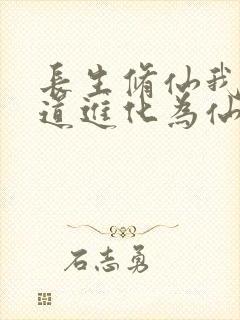 長生脩仙我
道進化為仙
石志勇